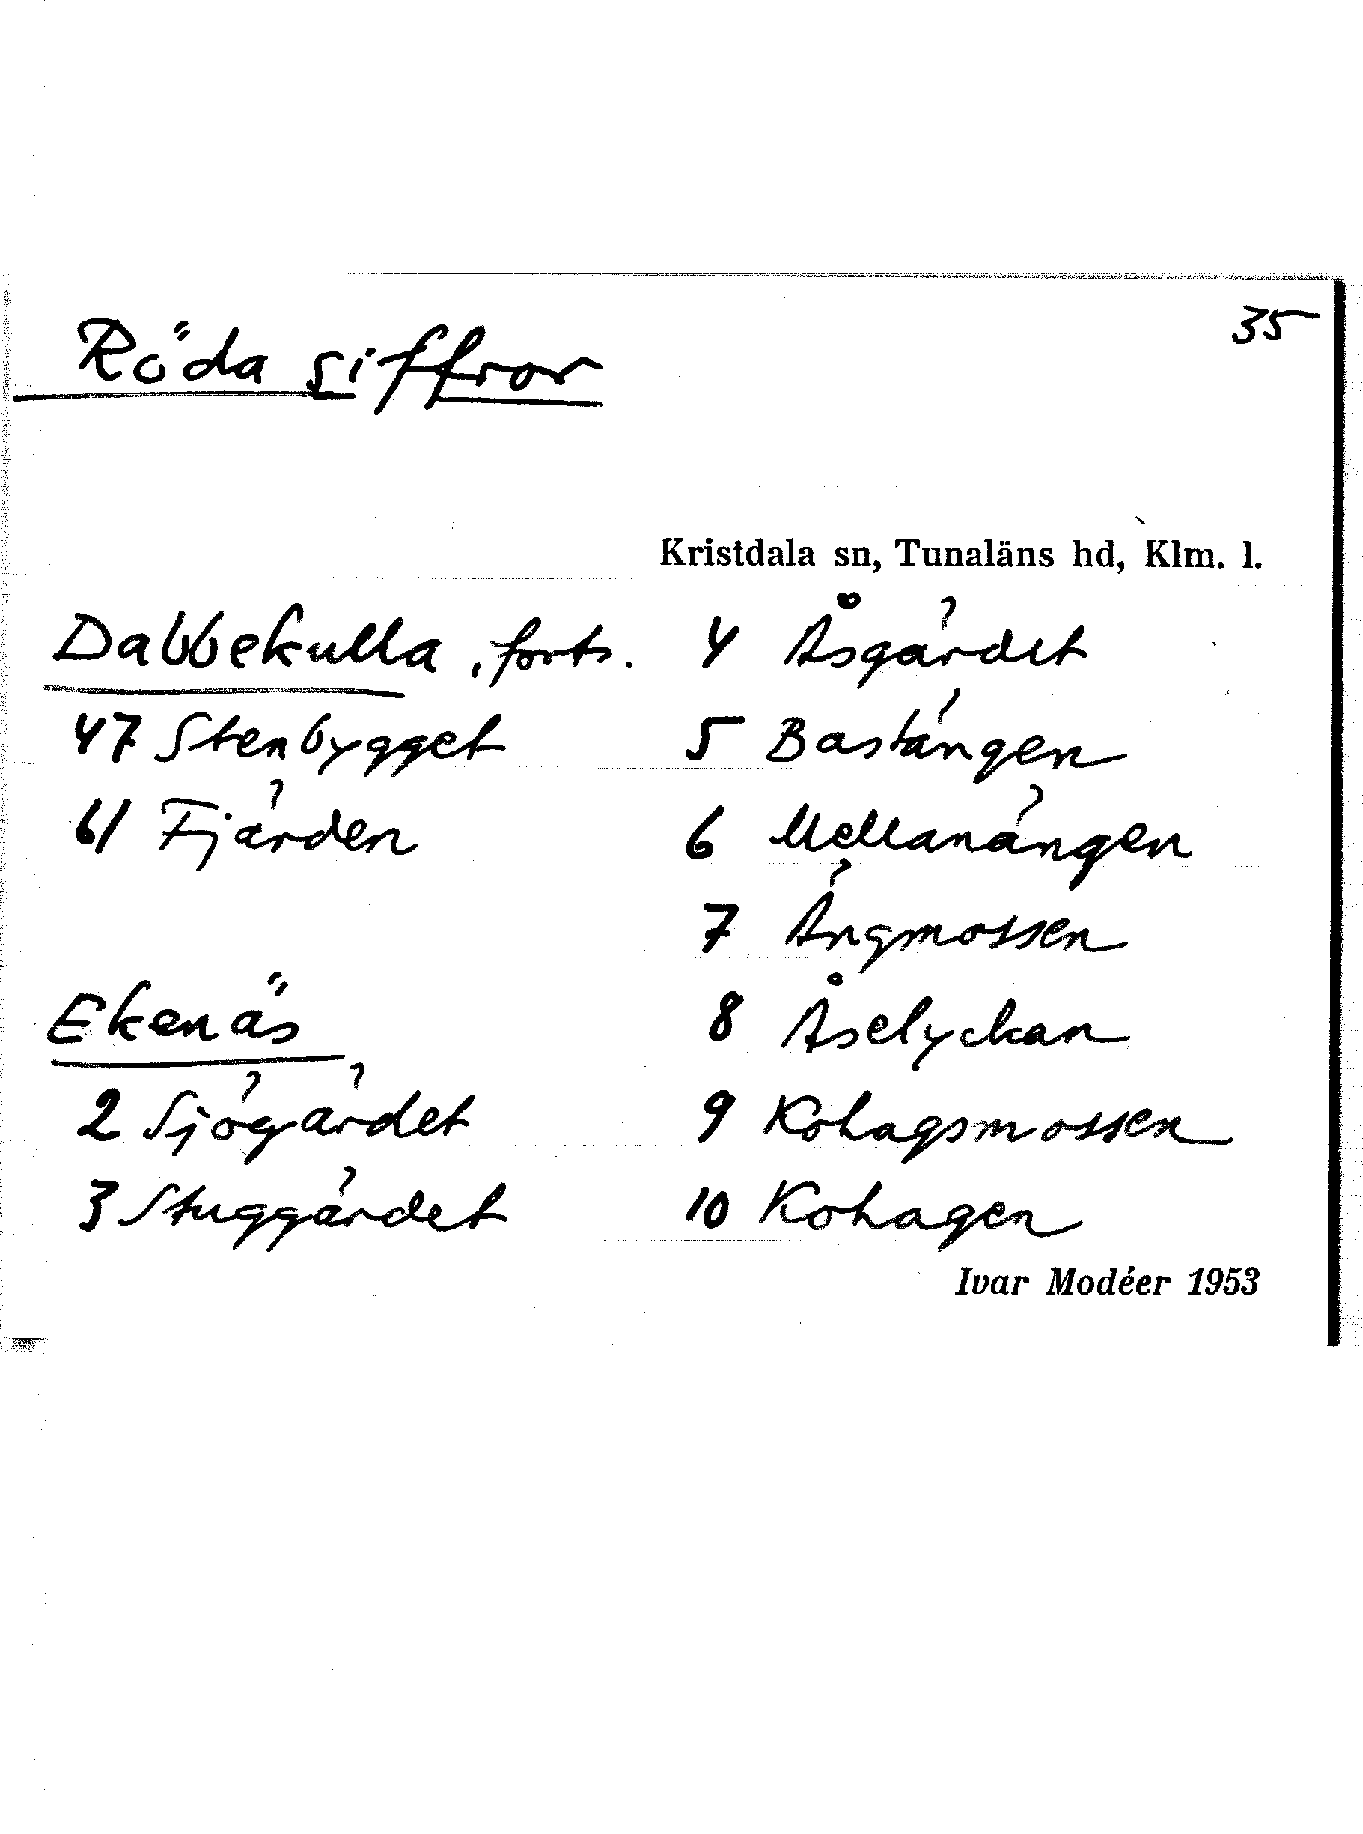 35
Röda siffror
Kristdala sn, Tunaläns hd, Klm. l.
Dabbekulla, forts.
47 Stenbygget
61 Fjärden
Ekenäs
2 Sjögärdet
3 Stuggärdet
4 Åsgärdet
5 Bastängen
6 Mellanängen
7 Ängmossen
8 Åselyckan
9 Kohagsmossen
10 Kohagen
Ivar Modéer 1953